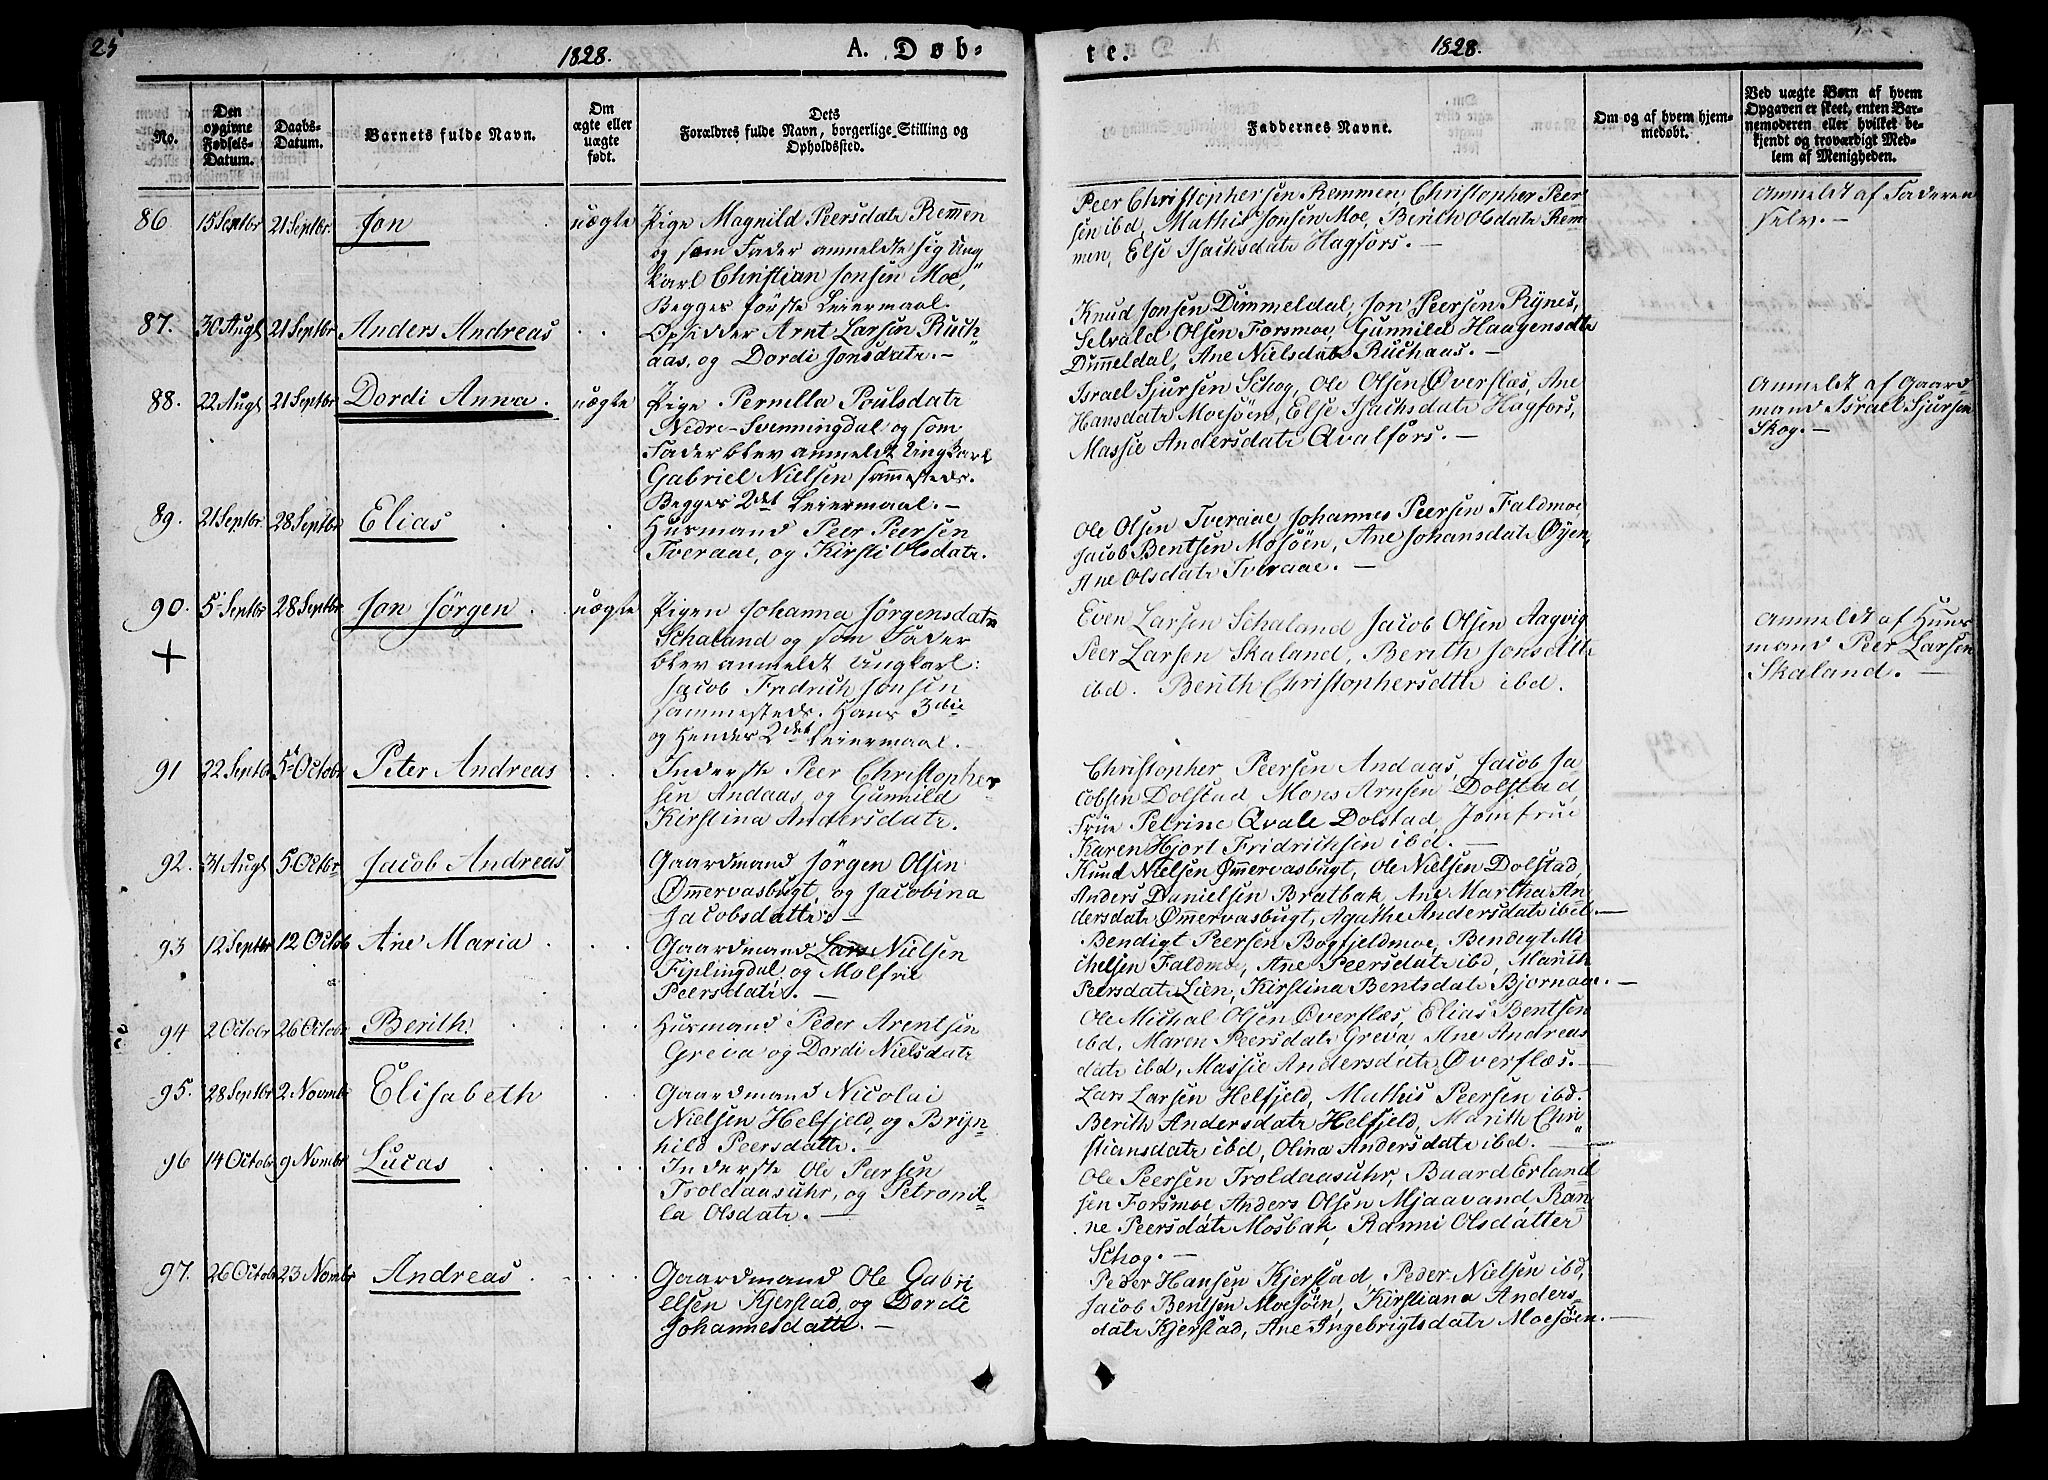 25
1828.
A. Døb-
te.
1828.
No.
Den
opgivne
Fødsels-
Datum.
Daabs-
Datum.
Barnets fulde Navn.
Om
ægte eller
uægte
født.
Dets
Forældres fulde Navn, borgerlige Stilling og
Opholdssted.
Faddernes Navne.
Om og af hvem hjem-
medøbt.
Ved uægte Børn af hvem
Opgaven er skeet, enten Bar-
nemoderen eller hvilket be-
kjendt og troværdigt Med-
lem af Menigheden.
86 15 Septbr 21 Septbr. Jon uægte Pige Magnild Peersdatr Remmen
og som Fader anmeldte sig Ung
karl Christian Jonsen Moe,
Begges første Leiermaal.
Peer Christophersen Remmen, Christopher Peer-
sen ibd, Mathis Jonsen Moe, Berith Olsdatr Rem-
men, Else Isachsdatr Hagfors. —
Anmeldt af Faderen
selv. —
87. 30 Augt 21 Septbr Anders Andreas . . Opsidder Arnt Larsen Ruch-
aas, og Dordi Jonsdatr. —
Knud Jonsen Dimmeldal, Jon Peersen Rynes,
Selvald Olsen Forsmoe, Gunnild Haagensdtr
Dimmeldal, Ane Nielsdatr Ruchaas. —
88. 22 Augt 21 Septbr Dordi Anna. uægte Pige Pernilla Poulsdatr
Nedre-Svenningdal og som
Fader blev anmeldt Ungkarl
Gabriel Nielsen sammesteds.
Begges 2det Leiermaal. —
Israel Sjursen Schog, Ole Olsen Øverflæs, Ane
Hansdatr Moesøen, Else Isachsdatr Hagfors,
Massie Andersdatr Qvalfors. —
Anmeldt af Gaard
mand Israel Sjursen
Skog. —
89. 21 Septbr. 28 Septbr Elias . . Husmand Peer Peersen
Tveraae, og Kirsti Olsdatr.
Ole Olsen Tveraae, Johannes Peersen Faldmoe,
Jacob Bentsen Mosøen, Ane Johansdatr Øyen,
Ane Olsdatr Tveraae. —
90. 5 Septbr 28 Septbr. Jon Jörgen . uægte Pigen Johanna Jörgensdatr
Schaland og som Fader
blev anmeldt Ungkarl:
Jacob Fredrich Jonsen
sammesteds. Hans 3die
og Hendes 2det Leiermaal. —
+
Even Larsen Schaland Jacob Olsen Aagvig
Peer Larsen Skaland, Berith Jonsdtr
ibd. Berith Christophersdtr ibd.
Anmeldt af Huus
mand Peer Larsen
Skaland. —
91 22 Septbr 5 Octobr Peter Andreas . . Inderste Peer Christopher-
sen Andaas, og Gunnild
Kirstina Andersdatr.
Christopher Peersen Andaas, Jacob Ja
cobsen Dolstad Mons Arnsen Dolstad,
Frue Petrine Qvale Dolstad, Jomfrue
Karen Hjort Fridrichsen ibd. —
92. 31 Augt 5 Octbr Jacob Andreas Gaardmand Jörgen Olsen
Ømmervasbugt, og Jacobina
Jacobsdatter. —
Knud Nielsen Ømmervasbugt, Ole Nielsen Dolstad,
Anders Danielsen Bratbak, Ane Martha An-
dersdatr Ømmervasbugt, Agathe Andersdatr ibd. —
93 12 Septbr 12 Octob Ane Maria . . . Gaardmand Lars Nielsen
Fiplingdal og Molfrie
Peersdatr. —
Bendigt Peersen Bogfjeldmoe, Bendigt Mi-
chelsen Faldmoe, Ane Peersdatr ibd, Marith
Peersdatr Lien, Kirstina Bentsdatr Bjornaae. —
94 2 Octobr 26 Octobr Berith. . . . Husmand Peder Arentsen
Greva og Dordi Nielsdatr
Ole Michal Olsen Øverflæs, Elias Bentsen
ibd, Maren Peersdatr Greva, Ane Andreas
datr ibd, Massie Andersdatr Øverflæs. —
95. 28 Septbr 2 Novmbr Elisabeth . . Gaardmand Nicolai
Nielsen Helfjeld, og Bryn-
hild Peersdatter. —
Lars Larsen Helfjeld, Mathis Peersen ibd.
Berith Andersdatr Helfjeld, Marith Chri-
stiansdatr ibd, Olina Andersdatr ibd. —
96 14 Octobr 9 Nombr Lucas . . . . Inderste Ole Peersen
Troldaasuhr, og Petronil-
la Olsdatr. —
Ole Peersen Troldaasuhr, Baard Erland
sen Forsmoe, Anders Olsen Mjaavand, Ran-
ne Peersdatr Mosbak, Ranni Olsdatter
Schog. —
97. 26 Octobr 23 Nombr Andreas . . . . Gaardmand Ole Gabri
elsen Kjerstad, og Dorde
Johannesdatter. —
Peder Hansen Kjerstad, Peder Nielsen ibd,
Jacob Bentsen Moesøen, Kirstiana Anders-
datr Kjerstad, Ane Ingebrigtsdatr Moesøen. —